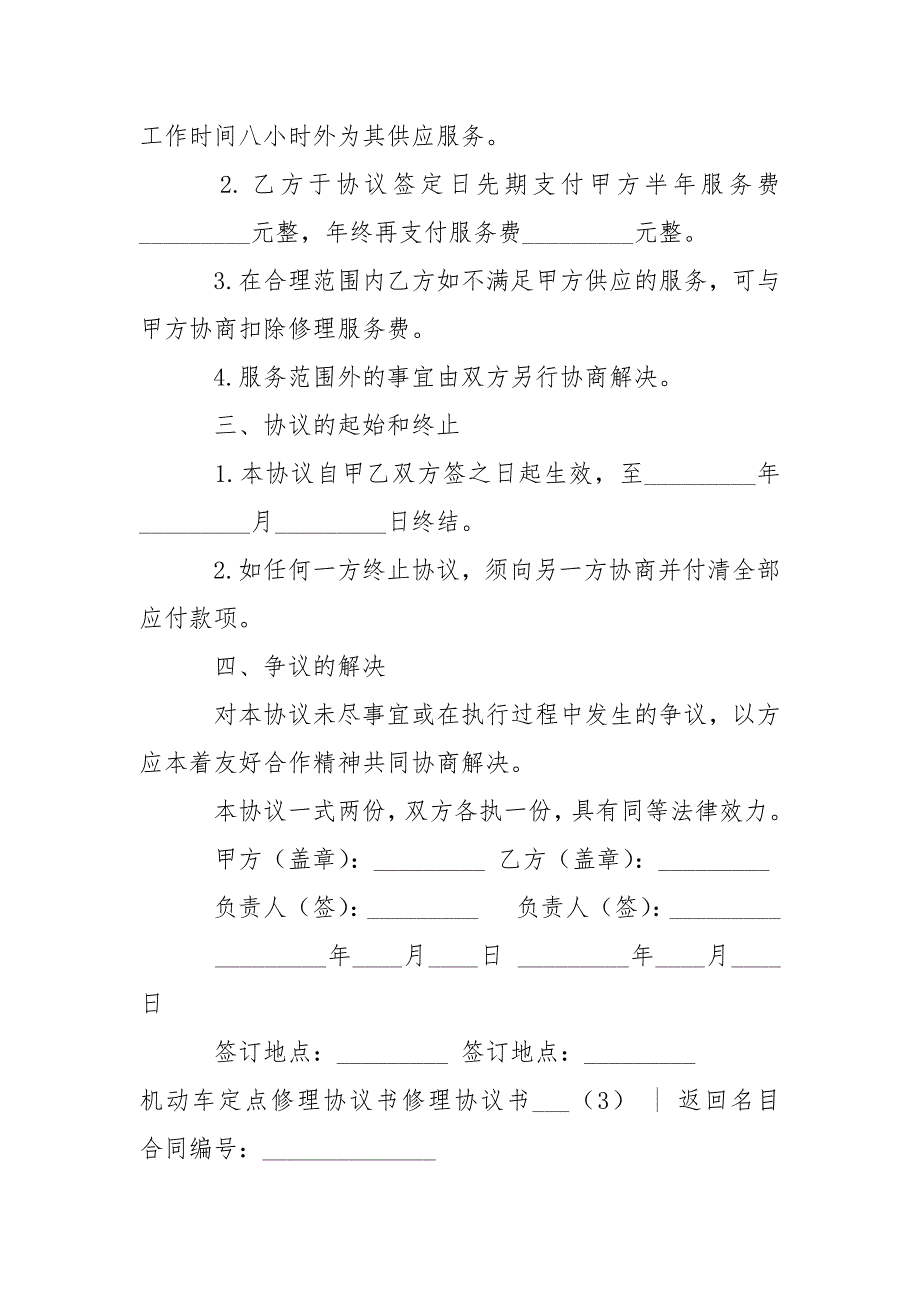 工作时间八小时外为其供应服务。
2. 乙方于协议签定日先期支付甲方半年服务费
_________元整，年终再支付服务费_________元整。
3.在合理范围内乙方如不满足甲方供应的服务，可与
甲方协商扣除修理服务费。
4.服务范围外的事宜由双方另行协商解决。
三、协议的起始和终止
1.本协议自甲乙双方签之日起生效，至_________年
_________月_________日终结。
2.如任何一方终止协议，须向另一方协商并付清全部
应付款项。
四、争议的解决
对本协议未尽事宜或在执行过程中发生的争议，以方
应本着友好合作精神共同协商解决。
本协议一式两份，双方各执一份，具有同等法律效力。
甲方（盖章）：_________ 乙方（盖章）：_________
负责人（签）：_________ 负责人（签）：_________
_________年____月____日 _________年____月____
日
签订地点：_________ 签订地点：_________
机动车定点修理协议书修理协议书___（3） | 返回名目
合同编号：______________